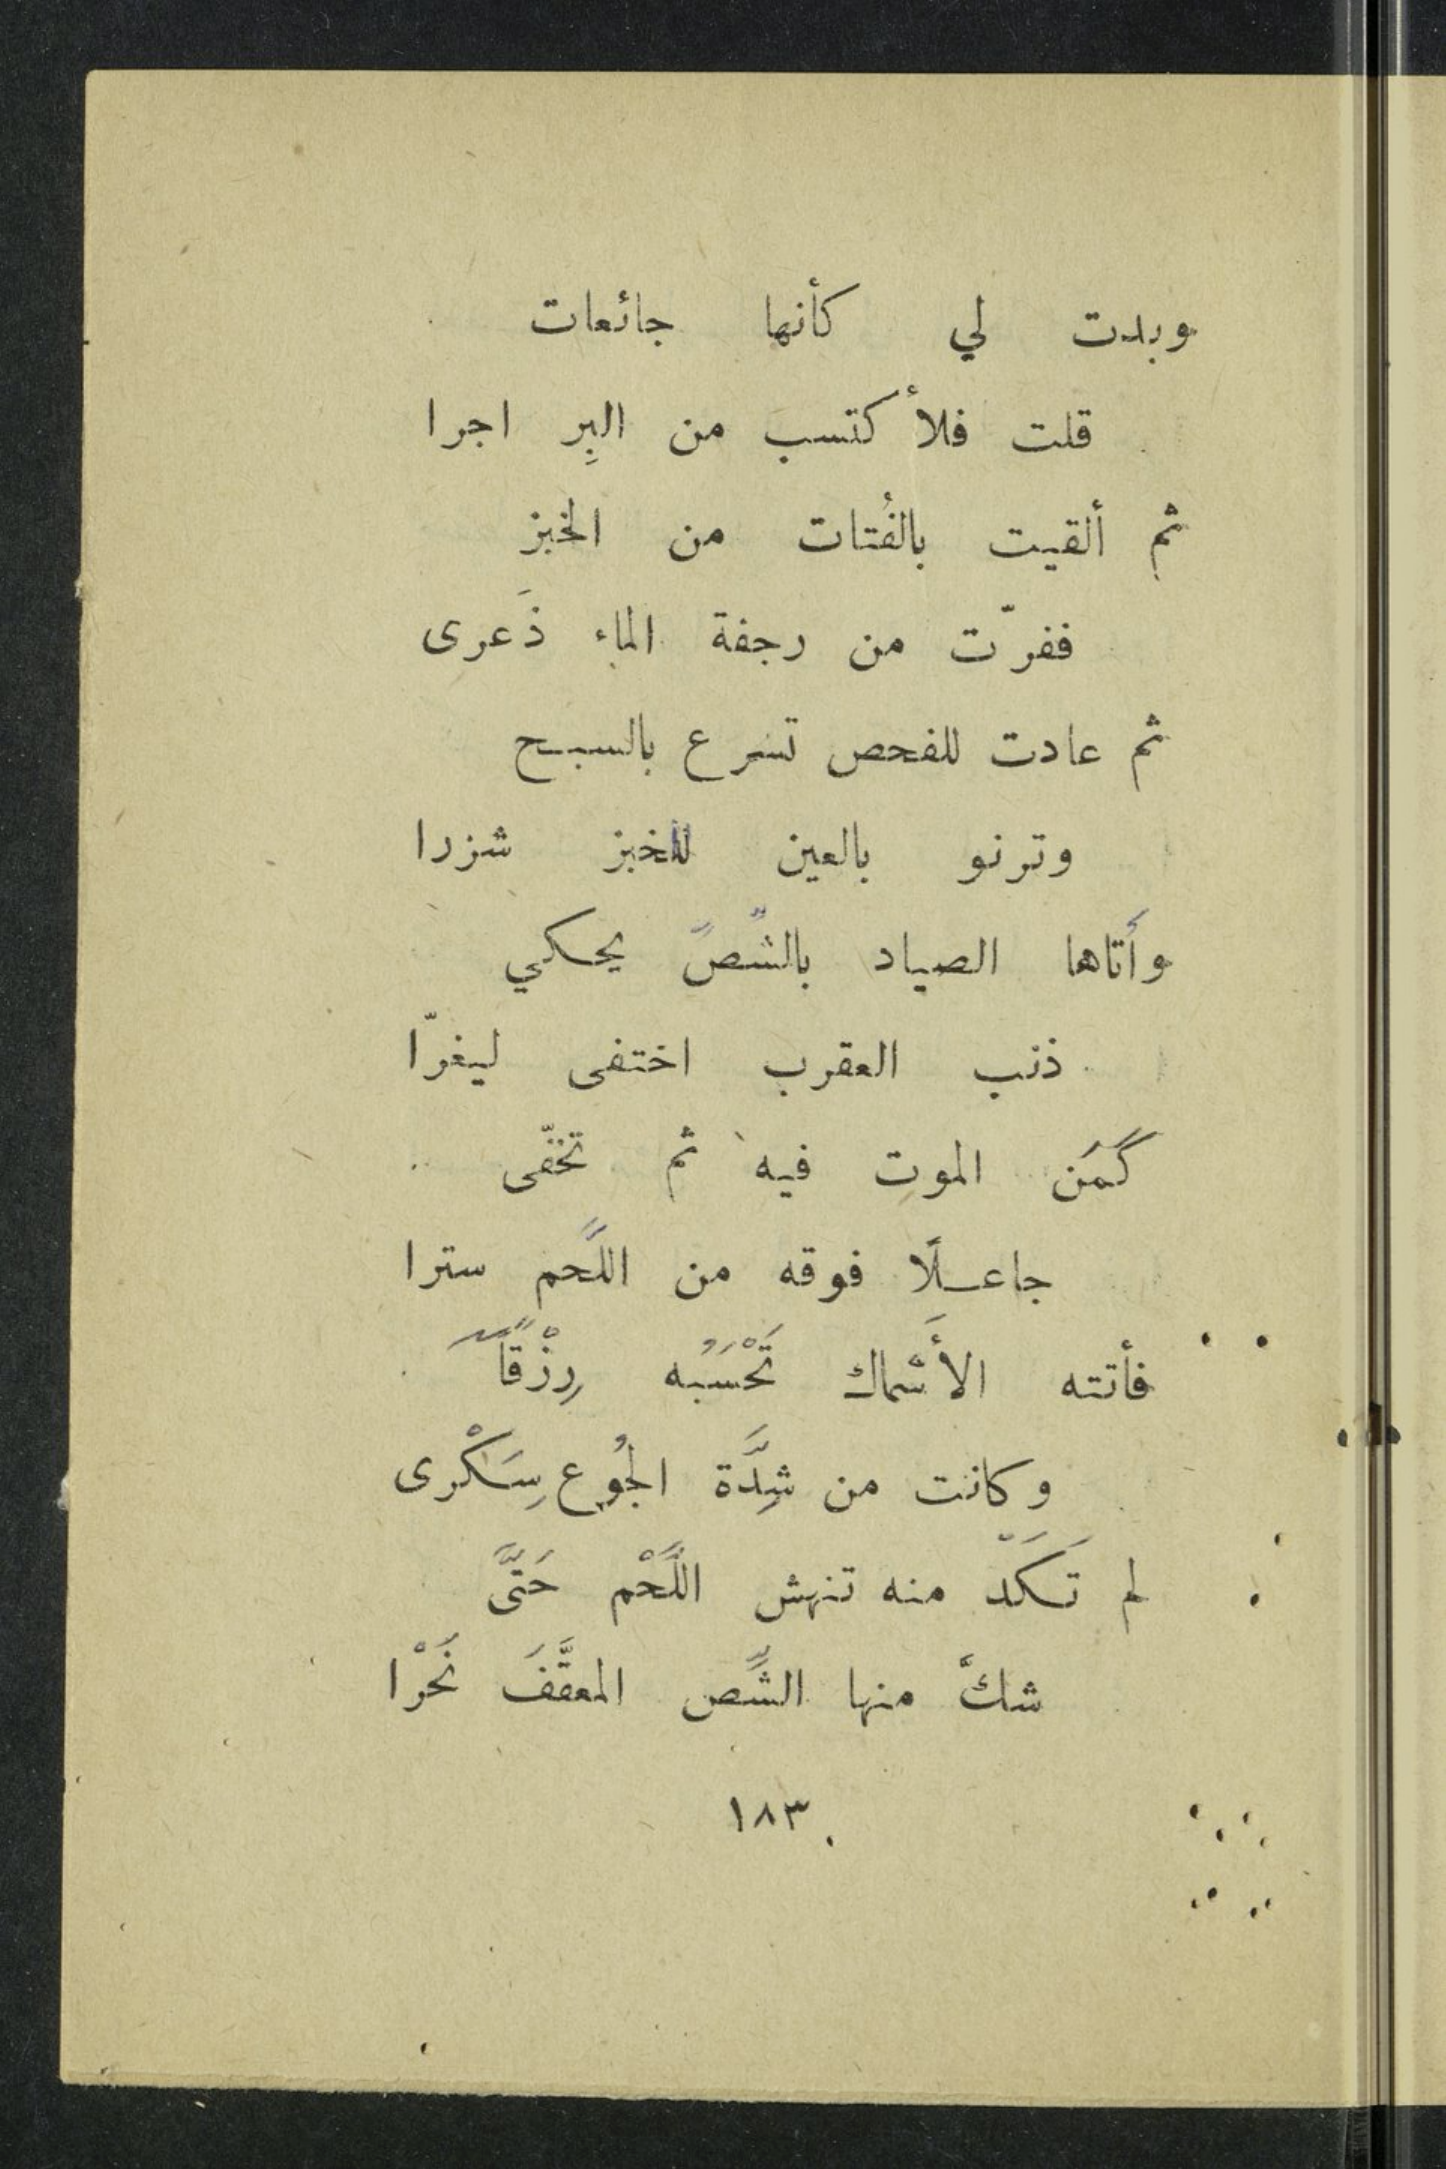 وبدت لي كأنها جائعات
قلت فلأكتسب من البِر اجرا
ثم ألقيت بالفُتات من الخبز
ففرّت من رجفة الماء ذَعرى
ثم عادت للفحص تسرع بالسبح
وترنو بالعين للخبز شزرا
وأَتاها الصياد بالشَّصّ يحكي
ذنب العقرب اختفى ليغرّا
كَمَن الموت فيه ثم تخفّى
جاعلًا فوقه من اللَّحم سترا
فأتته الأَسماك تَحْسَبُه رِزْقاً
وكانت من شِدَّة الجُوع سَكْرى
لم تَكَدْ منه تنهش اللَّحْم حَتَّى
شكَّ منها الشَّص المعقَّفَ نَحْرا
١٨٣